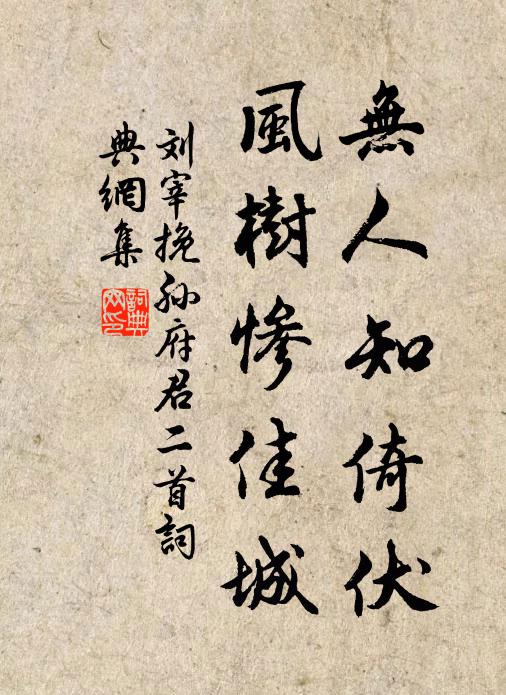 無人知倚伏
風樹慘佳城
刘宰挽孙府君二首詞
典網集
詞典
网印